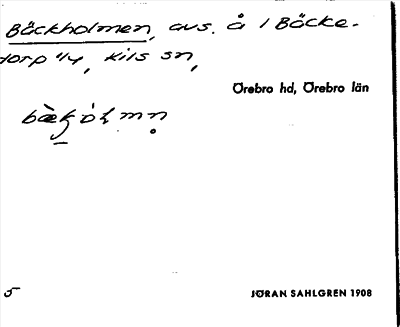 Bäckholmen, avs. å 1 Bäcke-
torp 4/4, Kils sn,
Örebro hd, Örebro län
5
JÖRAN SAHLGREN 1908